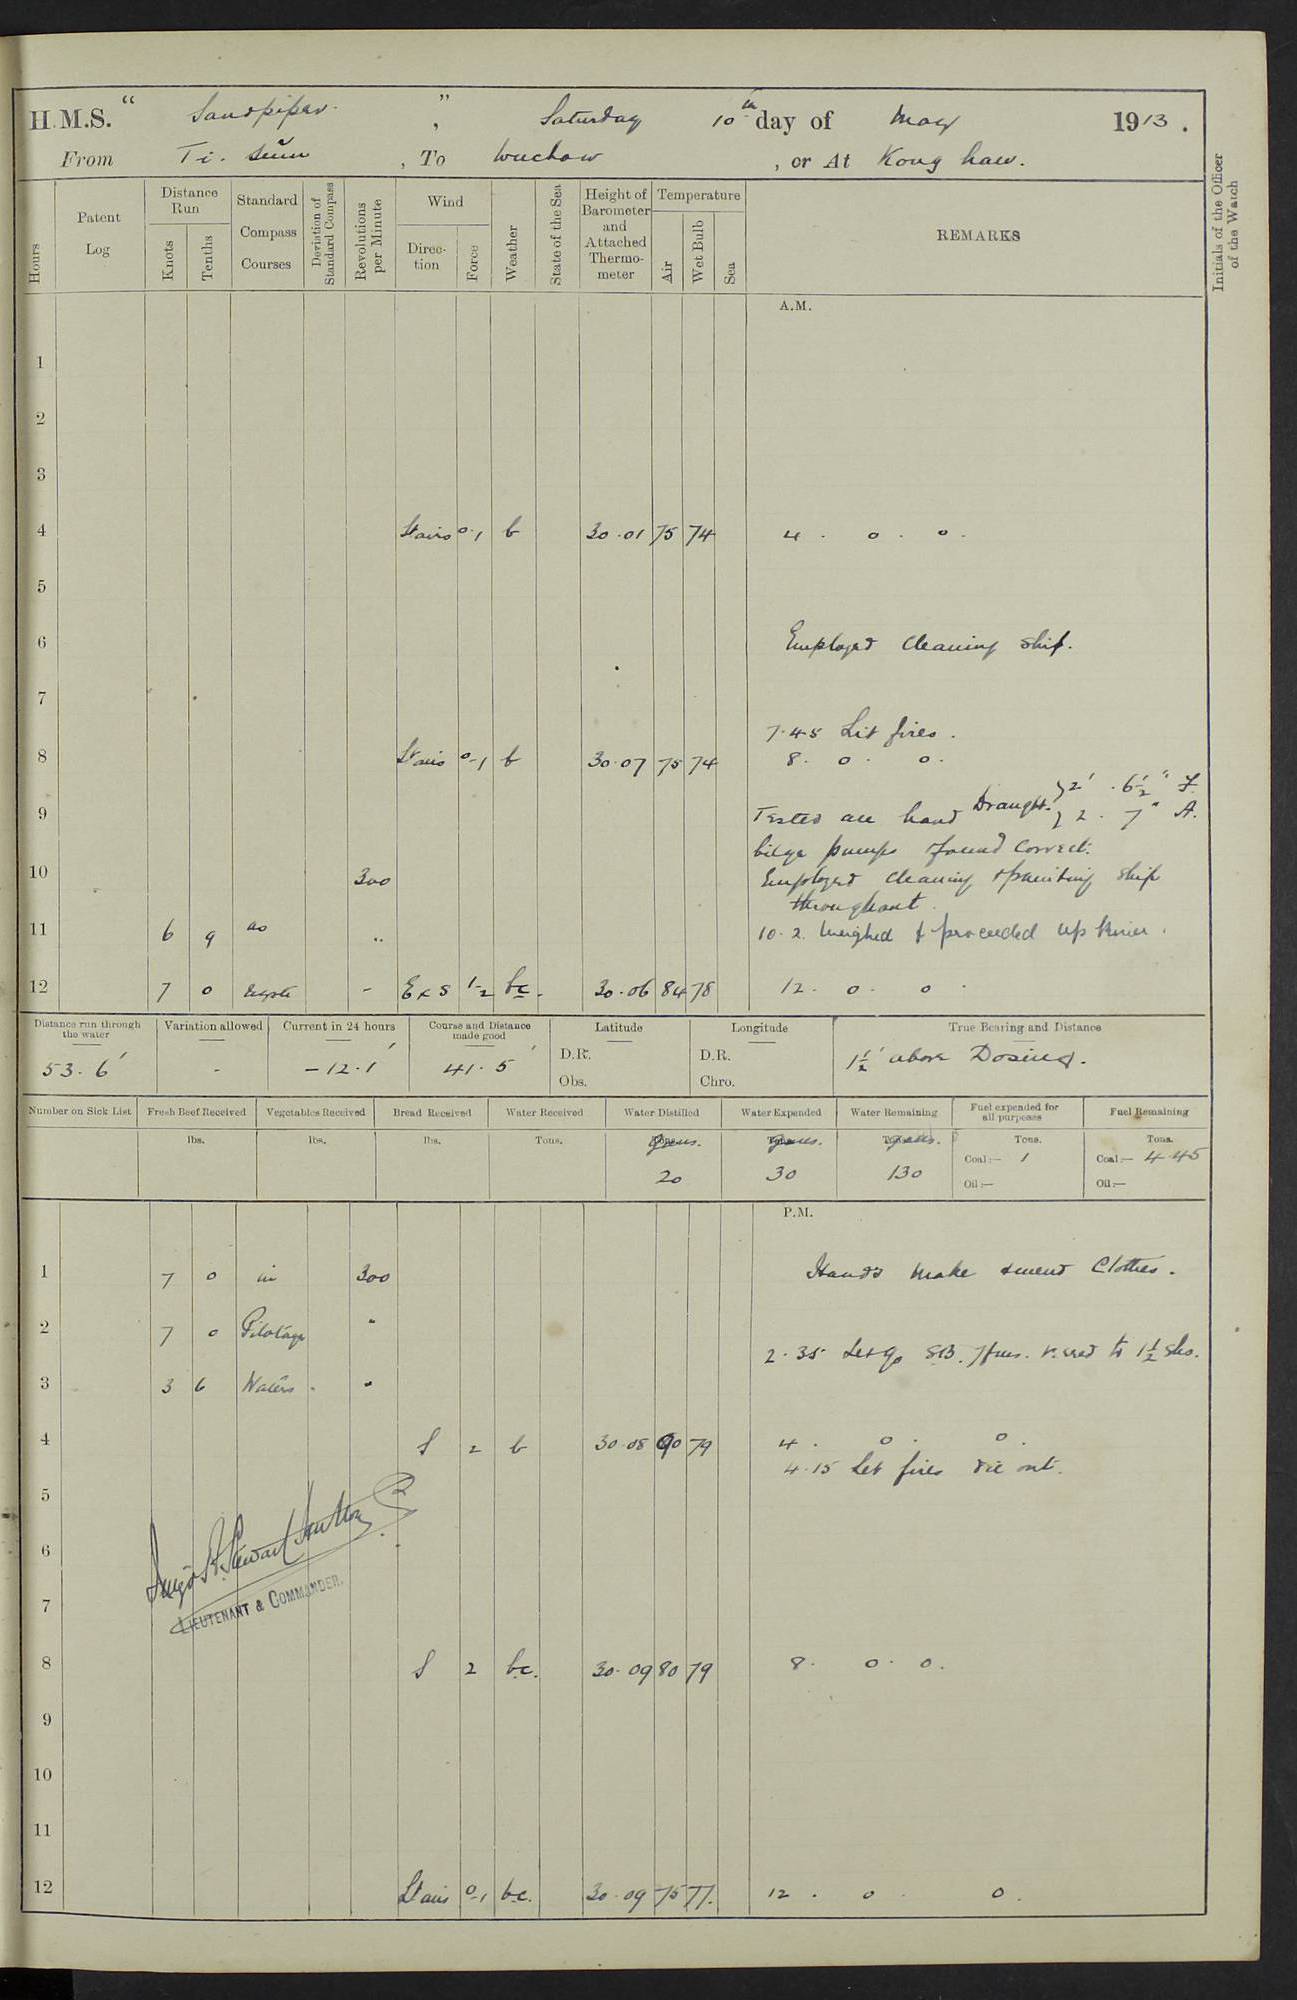 H.M.S. " Sandpiper. ", Saturday 10th day of May 1913.
From Ti. Sûm, To Wuchow, or At Kong haw.
Hours
Patent Log
Distance Run
Knots
Tenths
Standard Compass Courses
Deviation of Standard Compass
Revolutions per Minute
Wind
Direction
Force
Weather
State of the Sea
Height of Barometer and Attached Thermometer
Temperature
Air
Wet Bulb
Sea
REMARKS
Initials of the Officer of the Watch
A.M.
1
2
3
4 Lt airs 0.1 b 30.01 75 74 4 . 0 . 0 .
5
6 Employed cleaning ship.
7
7.45 Lit fires.
8 Lt airs 0-1 b 30.07 75 74 8. 0. 0.
Draught. } 2' . 6½" F.
9 Tested all hand } 2 . 7" A.
bilge pumps & found correct.
10 300 Employed cleaning & painting ship
throughout.
11 6 9 as " 10.2. Weighed & proceeded up River.
12 7 0 reqste - E x S 1-2 bc. 30.06 84 78 12. 0. 0.
Distance run through the water
Variation allowed
Current in 24 hours
Course and Distance made good
Latitude
Longitude
True Bearing and Distance
53.6' - -12.1' 41.5' D.R. D.R. 1½' above Dosing.
Obs. Chro.
Number on Sick List
Fresh Beef Received
Vegetables Received
Bread Received
Water Received
Water Distilled
Water Expended
Water Remaining
Fuel expended for all purposes
Fuel Remaining
lbs. lbs. lbs. Tons. Tons. Tons. Tons. Tons. Tons.
20 30 130 Coal:— 1 Coal:— 4.45
Oil:— Oil:—
P.M.
1 7 0 in 300 Hands make & mend Clothes.
2 7 0 Pilotage "
2.35 Let go S.B. 7 fms. veered to 1½ shs.
3 3 6 Waters. "
4 S 2 b 30.08 90 79 4. 0. 0.
4.15 Let fires die out.
5
6
LIEUTENANT & COMMANDER.
7
8 S 2 bc. 30.09 80 79 8. 0. 0.
9
10
11
12 Lt airs 0-1 bc. 30.09 75 77. 12 . 0 . 0.